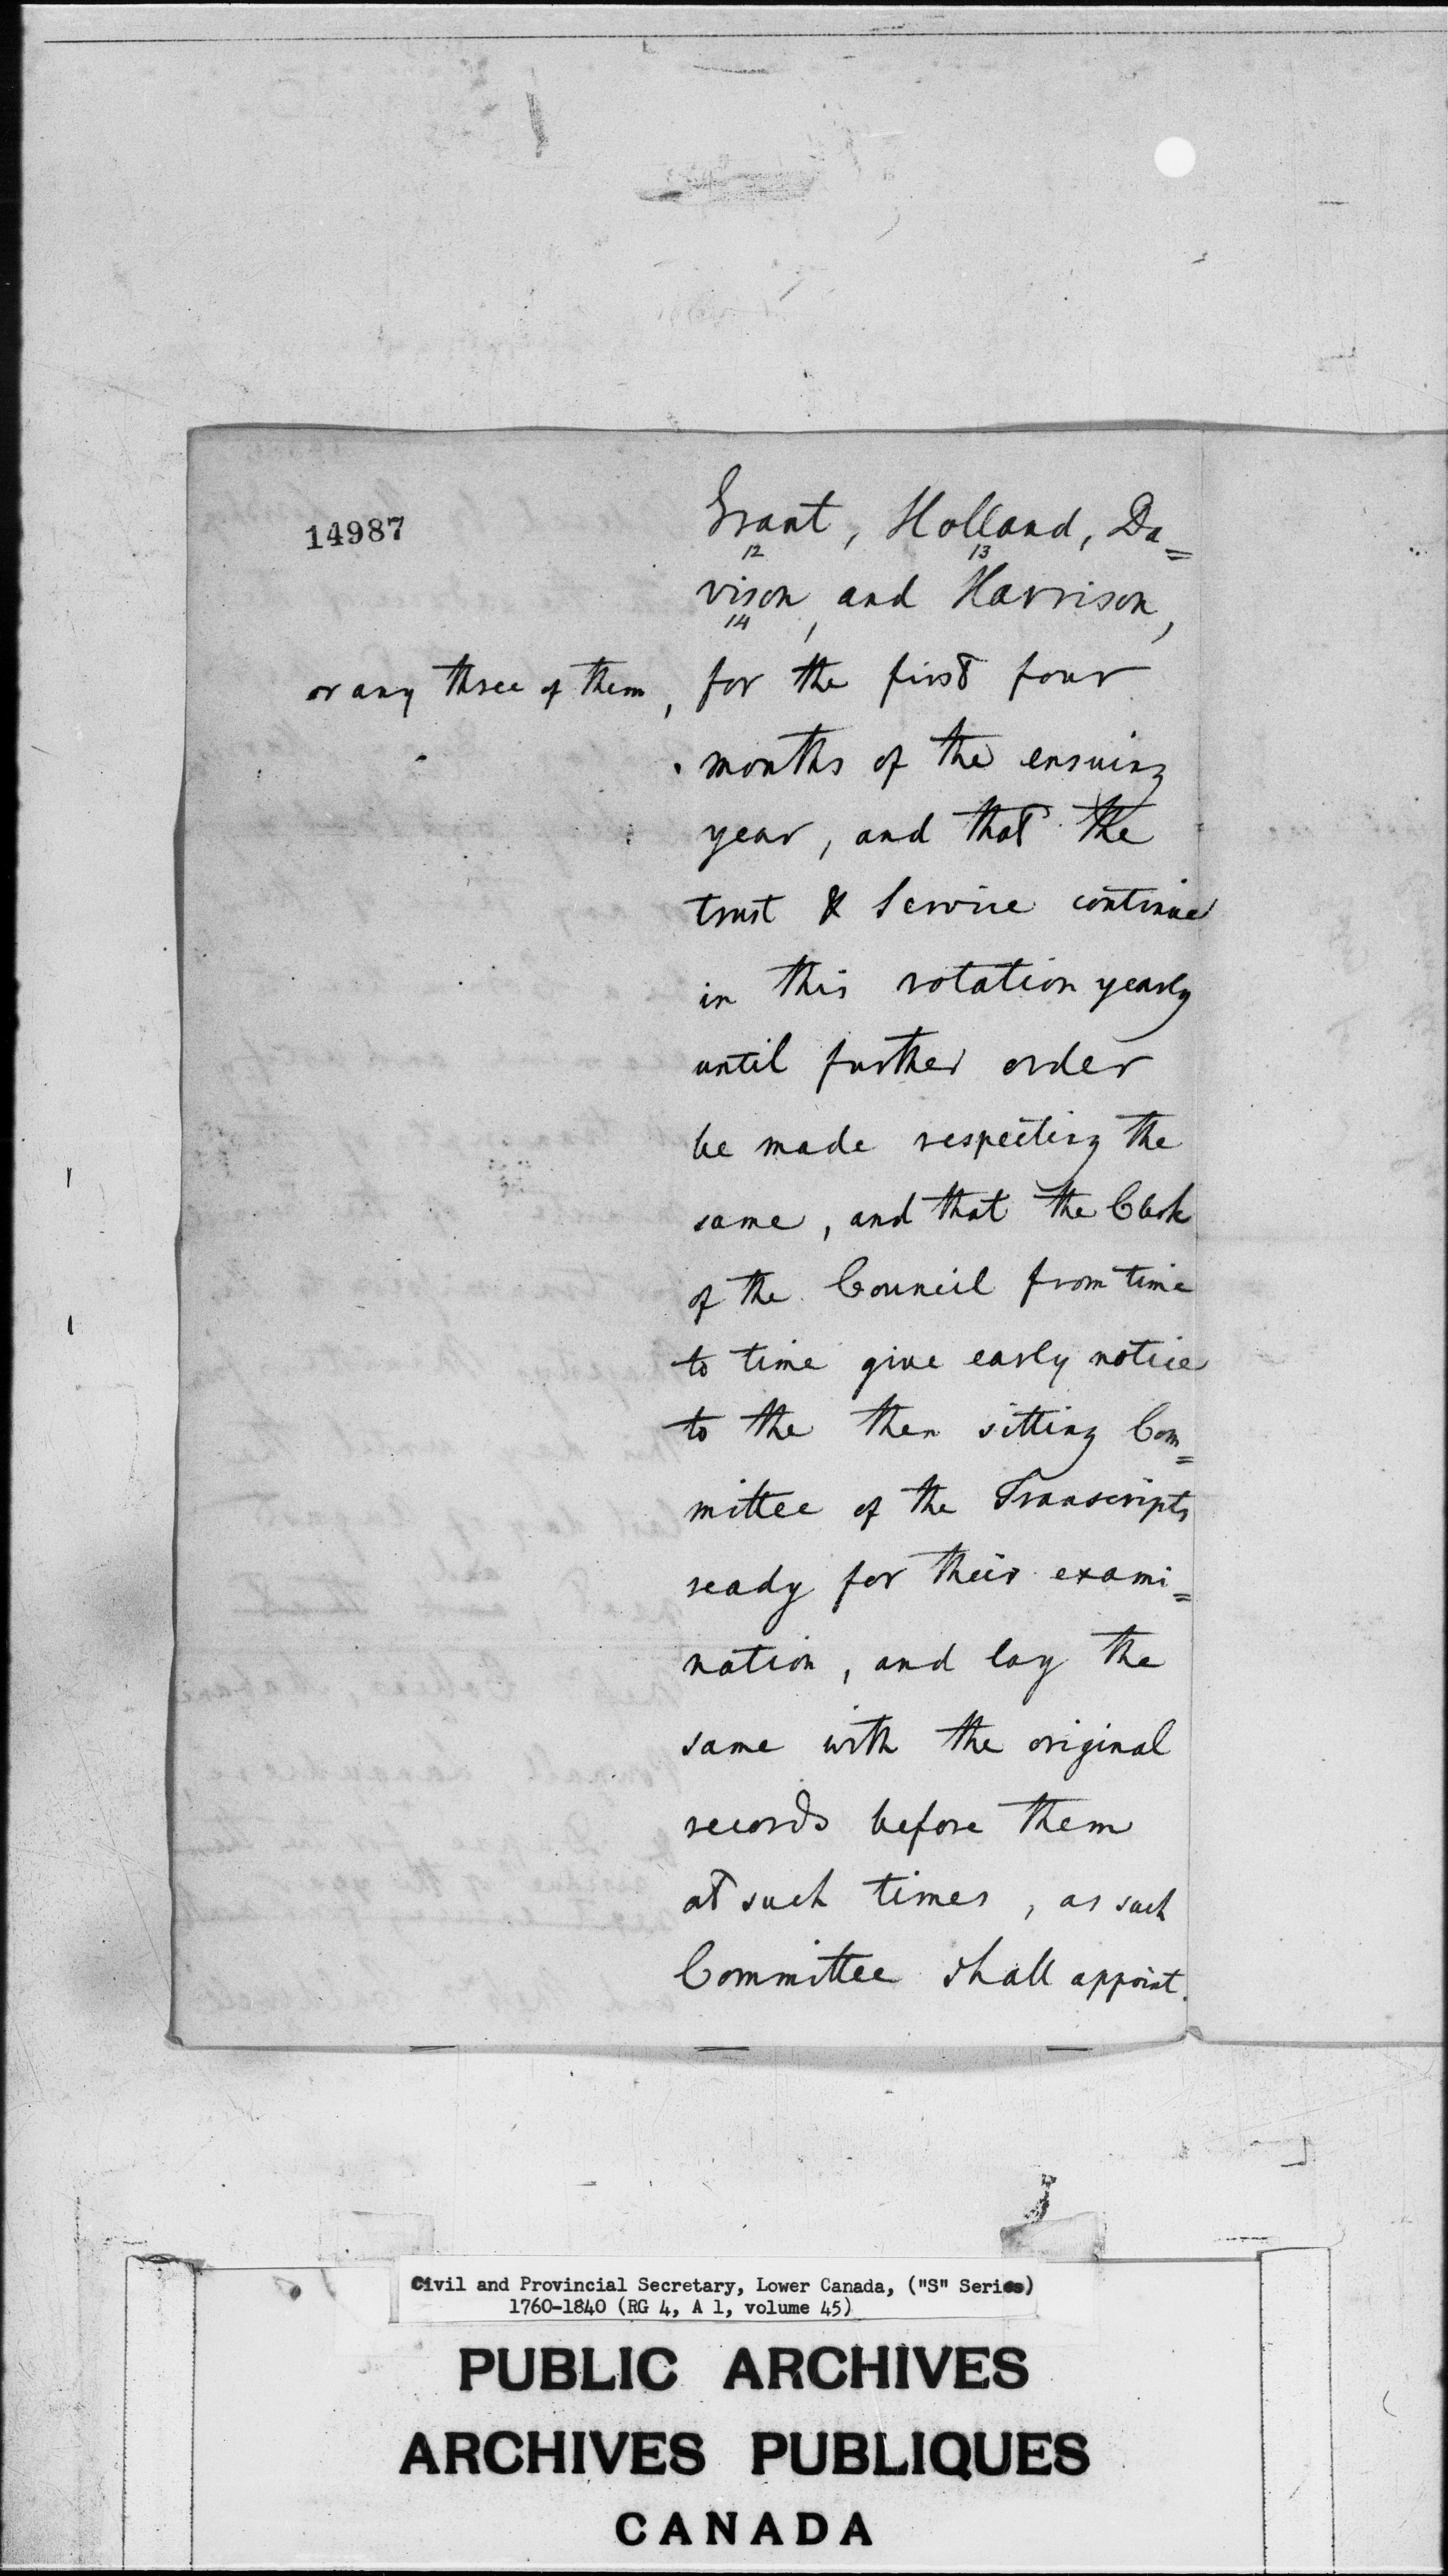 14987
Grant, Holland, Da=
12 13
vison, and Harrison,
14
or any three of them, for the first four
months of the ensuing
year, and that the
trust & Service continue
in this rotation yearly
until further order
be made respecting the
same, and that the Clerk
of the Council from time
to time give early notice
to the then sitting Com=
mittee of the Transcripts
ready for their exami=
nation, and lay the
same with the original
records before them
at such times, as such
Committee shall appoint.
Civil and Provincial Secretary, Lower Canada, ("S" Series)
1760-1840 (RG 4, A 1, volume 45)
PUBLIC ARCHIVES
ARCHIVES PUBLIQUES
CANADA